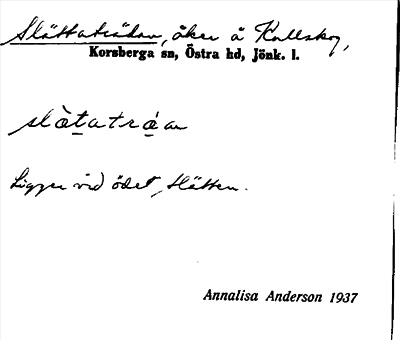 Slättaträdan, åker å Kullskog,
Korsberga sn, Östra hd, Jönk. l.
slàtatráan
Ligger vid ödet, Slätten.
Annalisa Anderson 1937